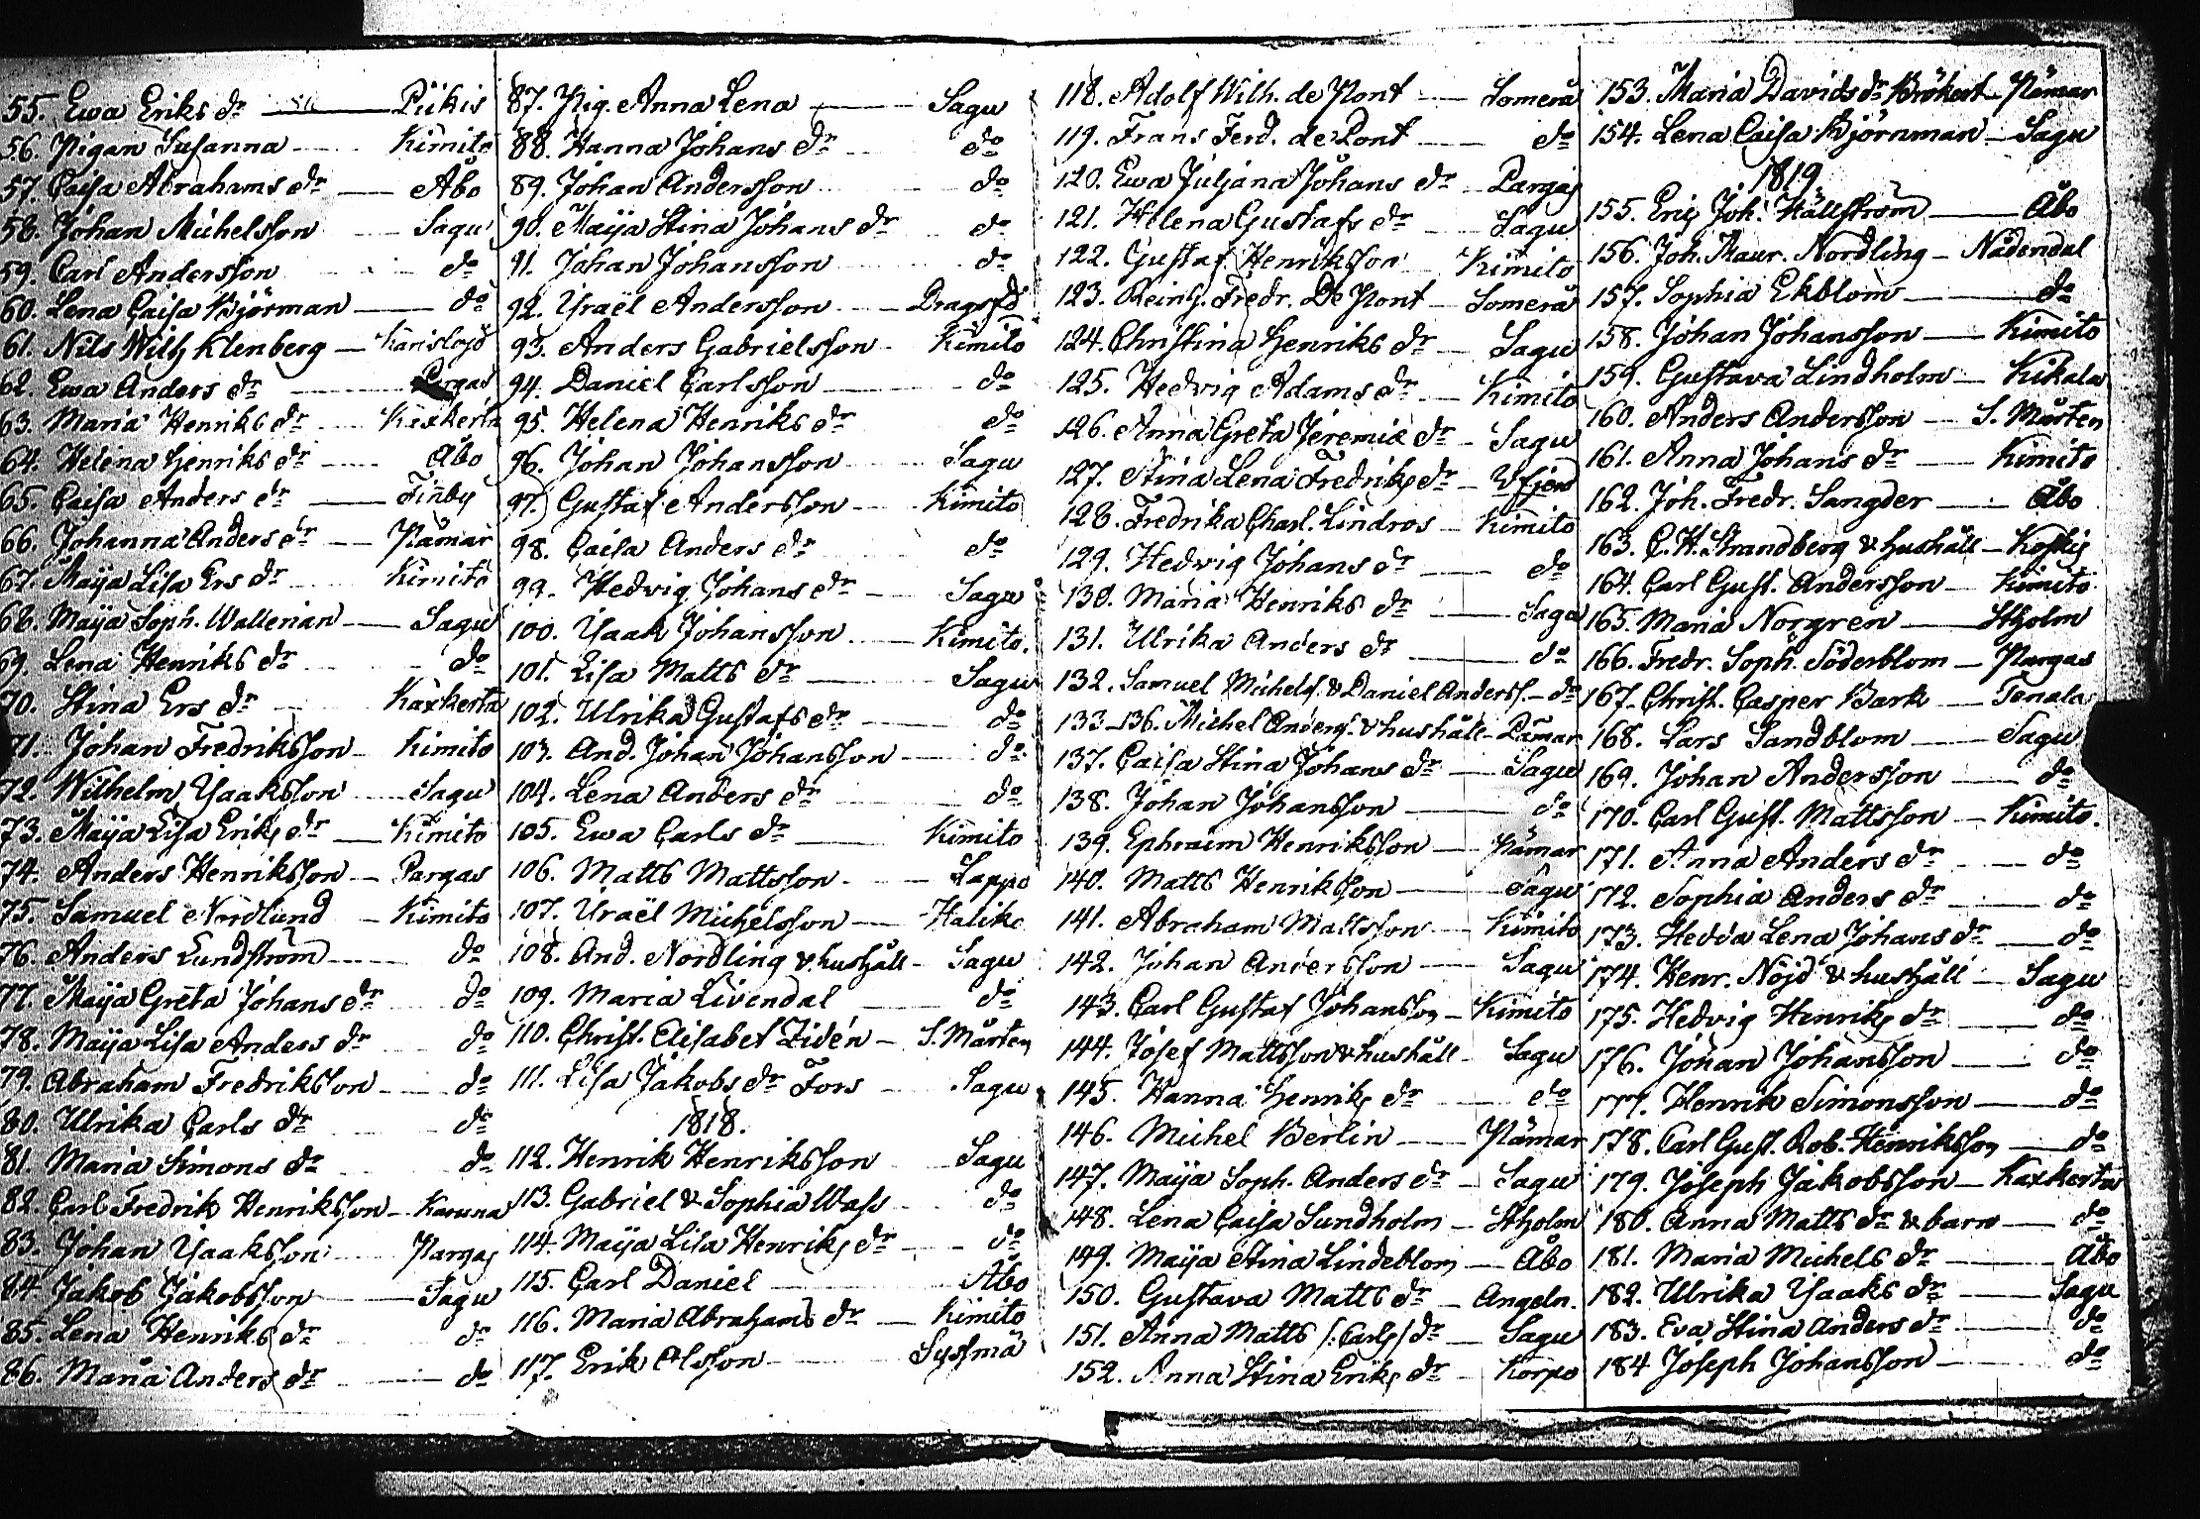 55. Ewa Eriks dr Piikis
56. Pigan Susanna Kimito
57. Caisa Abrahams dr Åbo
58. Johan Michelsson Sagu
59. Carl Andersson do
60. Lena Caisa Björman do
61. Nils Wilh Klenberg Karislojo
62. Ewa Anders dr Pargas
63. Maria Henriks dr Kaxkerta
64. Helena Henriks dr Åbo
65. Caisa Anders dr Finby
66. Johanna Anders dr Pämar
67. Maija Lisa Ers dr Kimito
68. Maija Soph. Wallenian Sagu
69. Lena Henriks dr do
70. Stina Ers dr Kaxkerta
71. Johan Fredriksson Kimito
72. Wilhelm Isaaksson Sagu
73. Maija Lisa Eriks dr Kimito
74. Anders Henriksson Pargas
75. Samuel Nordlund Kimito
76. Anders Lundström do
77. Maija Greta Johans dr do
78. Maija Lisa Anders dr do
79. Abraham Fredriksson do
80. Ulrika Carls dr do
81. Maria Simons dr do
82. Carl Fredrik Henriksson Karuna
83. Johan Isaaksson Pargas
84 Jakob Jakobsson Sagu
85. Lena Henriks dr do
86. Maria Anders dr do
87. Pig. Anna Lena Sagu
88. Hanna Johans dr do
89. Johan Andersson do
90. Maija Stina Johans dr do
91. Johan Johansson do
92. Israël Andersson Dragsfd
93. Anders Gabrielsson Kimito
94. Daniel Carlsson do
95. Helena Henriks dr do
96. Johan Johansson Sagu
97. Gustaf Andersson Kimito
98. Caisa Anders dr do
99. Hedvig Johans dr Sagu
100. Isaak Johansson Kimito.
101. Lisa Matts dr Sagu
102. Ulrika Gustafs dr do
103. And. Johan Johansson do
104. Lena Anders dr do
105. Ewa Carls dr Kimito
106. Matts Mattsson Lappo
107. Israël Michelsson Haliko
108. And. Nordling & hushåll Sagu
109. Maria Livendal do
110. Christ. Elisabet Zidén S. Mårten
111. Lisa Jakobs dr Fors Sagu
1818.
112. Henrik Henriksson Sagu
113. Gabriel & Sophia Wass do
114. Maija Lisa Henriks dr do
115. Carl Daniel Åbo
116. Maria Abrahams dr Kimito
117. Erik Olsson Syssmä
118. Adolf Wilh. de Pont Somerå
119. Frans Ferd. de Pont do
120. Ewa Juljana Johans dr Pargas
121. Helena Gustafs dr Sagu
122. Gustaf Henriksson Kimito
123. Reinh. Fredr. De Pont Somerå
124. Christina Henriks dr Sagu
125. Hedvig Adams dr Kimito
126. Anna Greta Jeremiæ dr Sagu
127. Stina Lena Fredriks dr
128. Fredrika Charl. Lindros Kimito
129. Hedvig Johans dr do
130. Maria Henriks dr Sagu
131. Ulrika Anders dr do
132. Samuel Michelss. & Daniel Anderss. do
133-136. Michel Anders. & hushåll Pämar
137. Caisa Stina Johans dr Sagu
138. Johan Johansson do
139. Ephraim Henriksson Pämar
140. Matts Henriksson Sagu
141. Abraham Mattsson Kimito
142. Johan Andersson Sagu
143. Carl Gustaf Johansson Kimito
144. Josef Mattsson & hushåll Sagu
145. Hanna Henriks dr do
146. Michel Berlin Pämar
147. Maija Soph. Anders dr Sagu
148. Lena Caisa Sundholm Stholm
149. Maija Stina Lindeblom Åbo
150. Gustava Matts dr Angeln.
151. Anna Matts /: Carls/ dr Sagu
152. Anna Stina Eriks dr Korpo
153. Maria Davids dr Brökert Pämar
154. Lena Caisa Björnman Sagu
1819
155. Eriq Joh. Hällström Åbo
156. Joh. Maur. Nordling Nådendal
157. Sophia Ekblom do
158. Johan Johansson Kimito
159. Gustava Lindholm Kikala
160. Anders Andersson S. Mårten
161. Anna Johans dr Kimito
162. Joh. Fredr. Sangder Åbo
163. C. H. Strandberg & hushåll Koskis
164. Carl Gust. Andersson Kimito
165. Maria Norgren Stholm
166. Fredr. Soph. Söderblom Pargas
167. Christ. Casper Bark Tenala
168. Lars Sandblom Sagu
169. Johan Andersson do
170. Carl Gust. Mattsson Kimito.
171. Anna Anders dr do
172. Sophia Anders dr do
173. Hedda Lena Johans dr do
174. Henr. Nöjd & hushåll Sagu
175. Hedvig Henriks dr do
176. Johan Johansson do
177. Henrik Simonsson do
178. Carl Gust. Rob. Henriksson do
179. Joseph Jakobsson Kaxkerta
180. Anna Matts dr & barn do
181. Maria Michels dr Åbo
182. Ulrika Isaaks dr Sagu
183. Eva Stina Anders dr do
184 Joseph Johansson do